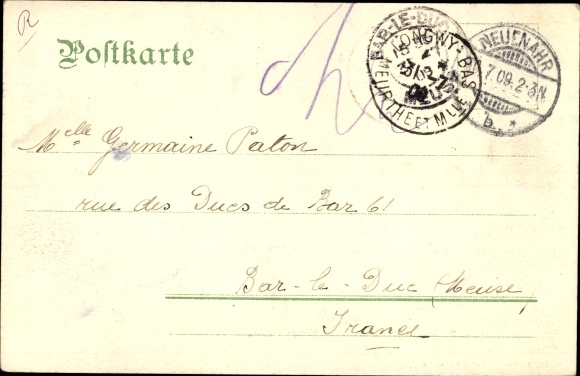 R
Postkarte
BAR-LE-DUC
LONGWY-BAS
MEURTHE ET MLLE
NEUENAHR
7.09.2-3N
b *
Melle Germaine Paton
rue des Ducs de Bar 61
Bar-le-Duc (Meuse)
France